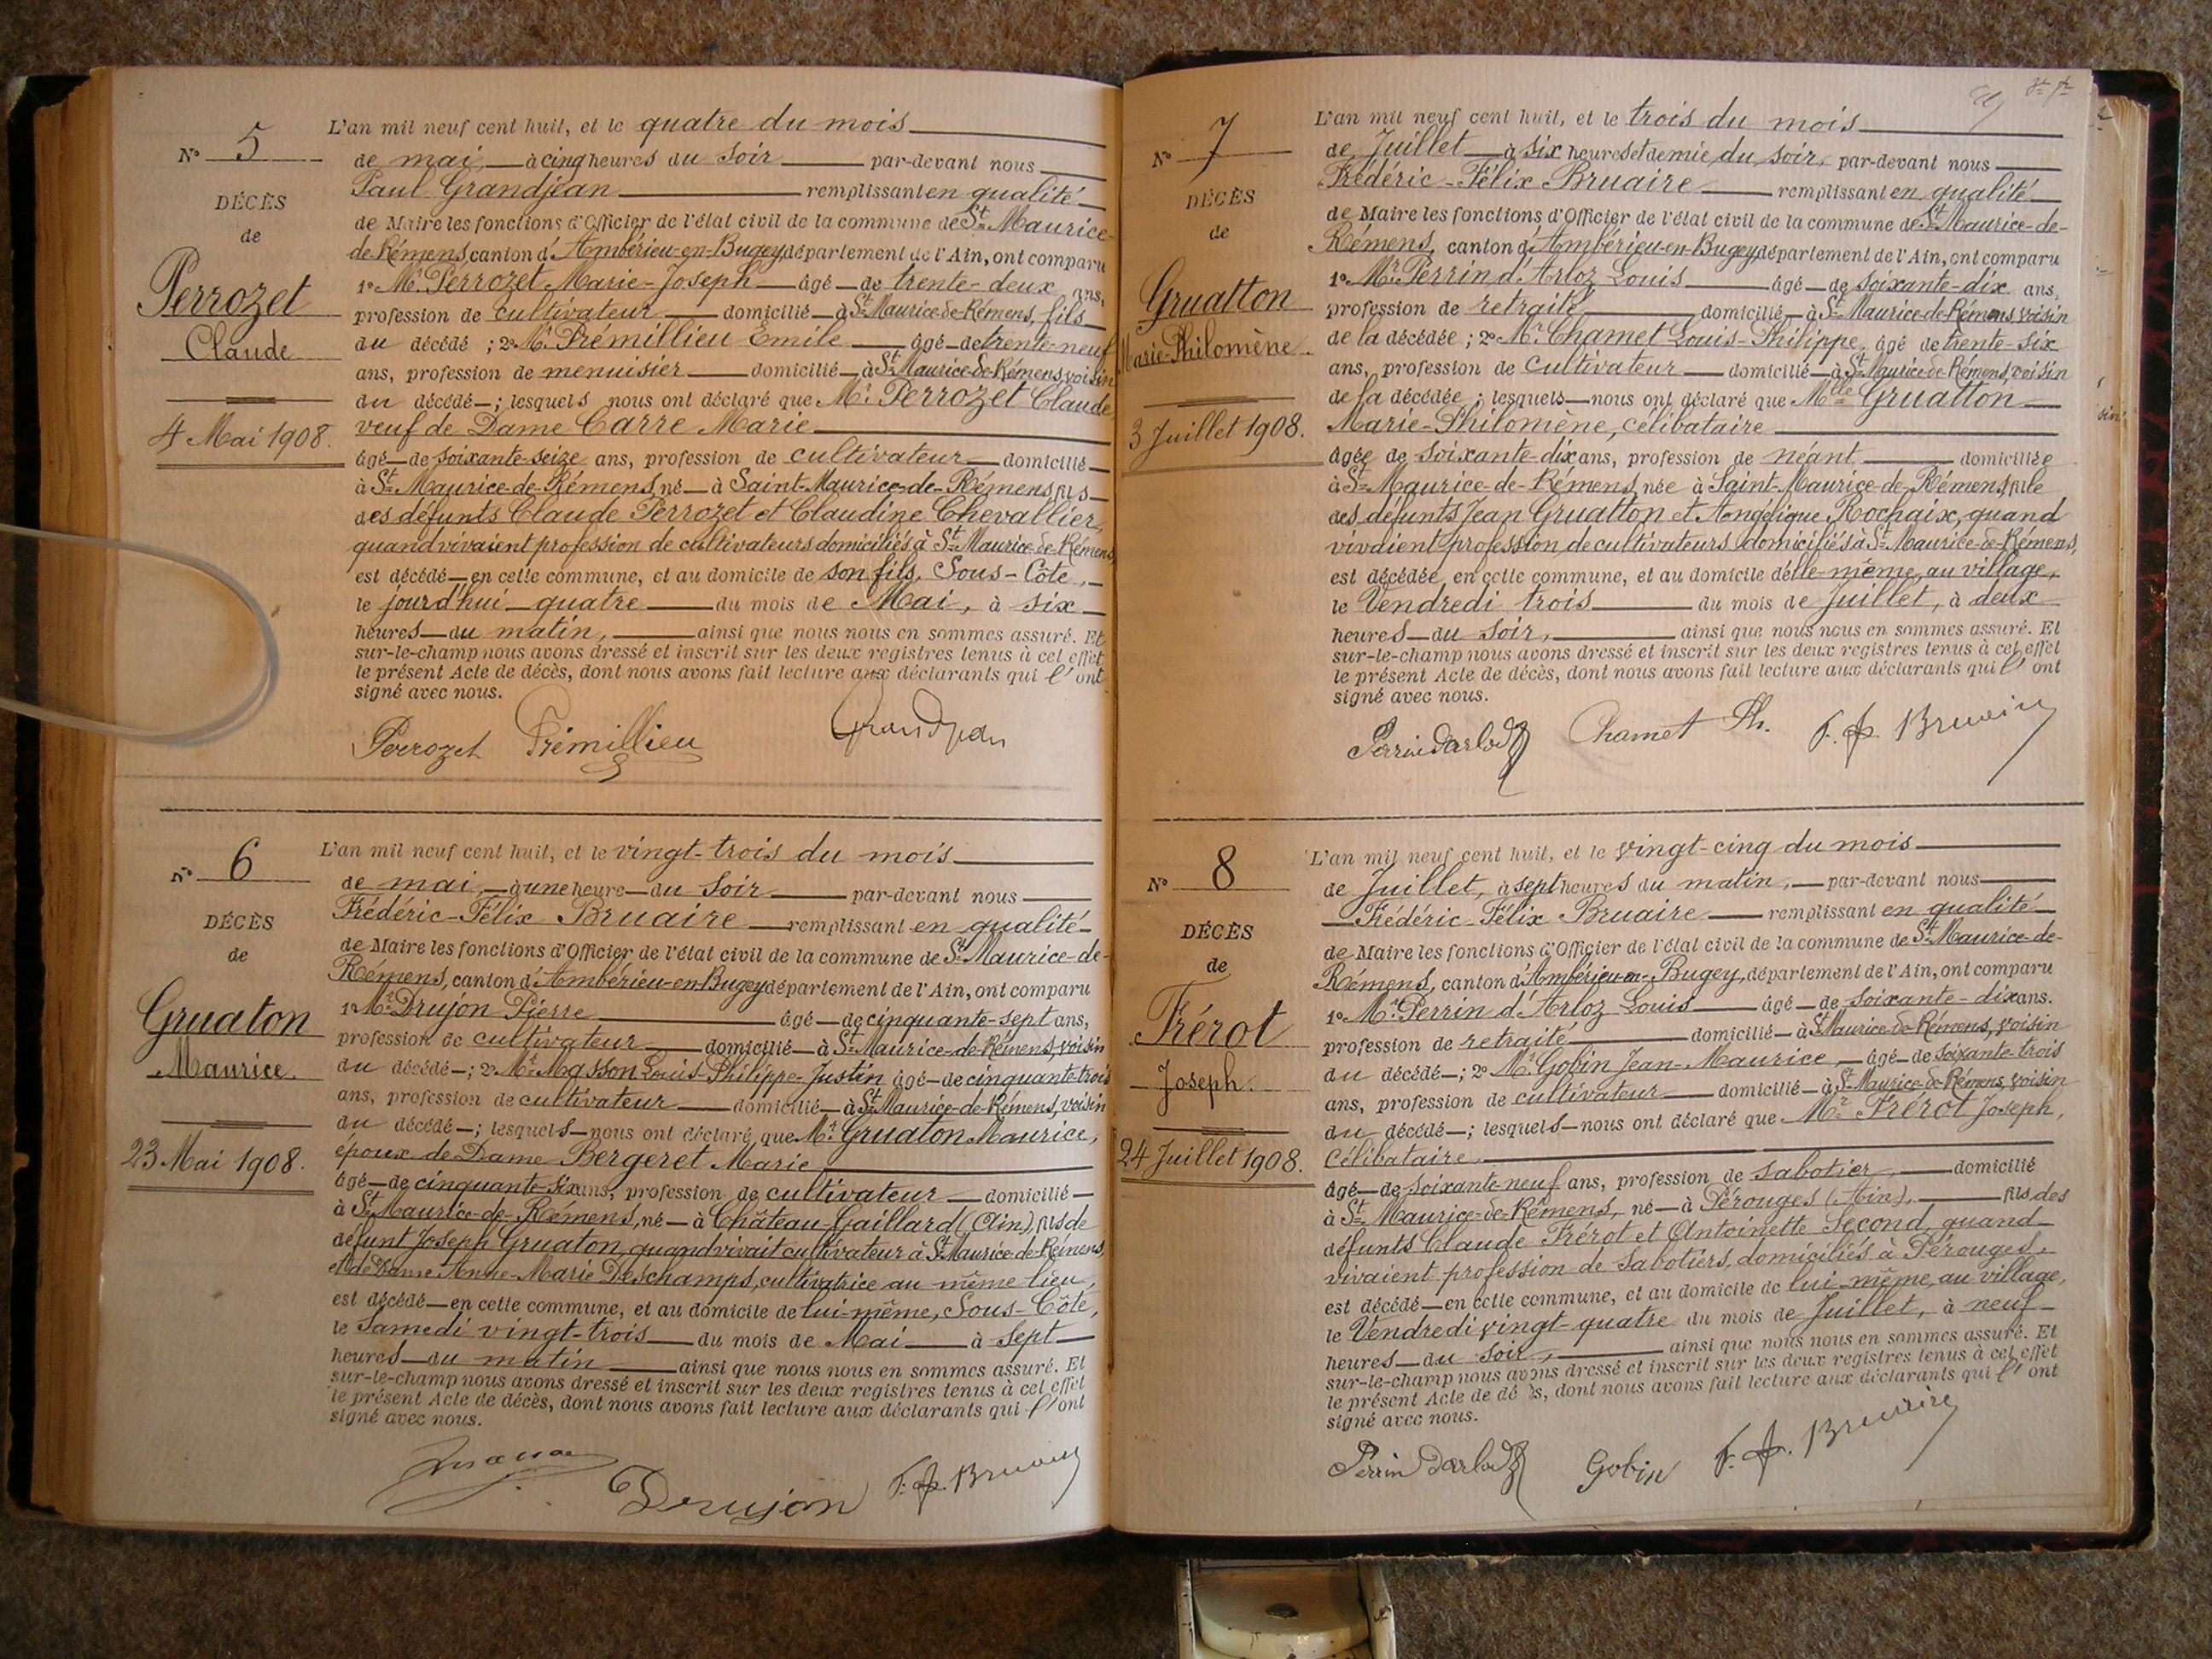 N° 5
DÉCÈS
de
Perrozet
Claude
4 Mai 1908.
L'an mil neuf cent huit, et le quatre du mois
de mai, à cinq heures du soir par-devant nous
Paul Grandjean remplissant en qualité
de Maire les fonctions d'Officier de l'état civil de la commune de St Maurice-
de-Rémens, canton d'Ambérieu-en-Bugey département de l'Ain, ont comparu
1° Mr Perrozet Marie-Joseph âgé de trente-deux ans,
profession de cultivateur domicilié à St Maurice-de-Rémens, fils
du décédé ; 2° Mr Prémillieu Emile âgé de trente-neuf
ans, profession de menuisier domicilié à St Maurice-de-Rémens, voisin
du décédé ; lesquels nous ont déclaré que Mr Perrozet Claude
veuf de Dame Carre Marie
âgé de soixante-seize ans, profession de cultivateur domicilié
à St Maurice-de-Rémens, né à Saint-Maurice-de-Rémens, fils
des défunts Claude Perrozet et Claudine Chevallier,
quand vivaient profession de cultivateurs domiciliés à St Maurice-de-Rémens
est décédé en cette commune, et au domicile de son fils, Sous-Côte,
le jourd'hui quatre du mois de Mai, à six
heures du matin, ainsi que nous nous en sommes assuré. Et
sur-le-champ nous avons dressé et inscrit sur les deux registres tenus à cet effet
le présent Acte de décès, dont nous avons fait lecture aux déclarants qui l'ont
signé avec nous.
Perrozet Prémillieu Grandjean
N° 6
DÉCÈS
de
Gruaton
Maurice
23 Mai 1908.
L'an mil neuf cent huit, et le vingt-trois du mois
de mai, à une heure du soir par-devant nous
Frédéric-Félix Bruaire remplissant en qualité
de Maire les fonctions d'Officier de l'état civil de la commune de St Maurice-de-
Rémens, canton d'Ambérieu-en-Bugey département de l'Ain, ont comparu
1° Mr Drujon Pierre âgé de cinquante-sept ans,
profession de cultivateur domicilié à St Maurice-de-Rémens, voisin
du décédé ; 2° Mr Masson Louis-Philippe-Justin âgé de cinquante-trois
ans, profession de cultivateur domicilié à St Maurice-de-Rémens, voisin
du décédé ; lesquels nous ont déclaré que Mr Gruaton Maurice,
époux de Dame Bergeret Marie
âgé de cinquante-six ans, profession de cultivateur domicilié
à St Maurice-de-Rémens, né à Château-Gaillard (Ain), fils de
défunt Joseph Gruaton, quand vivait cultivateur à St Maurice-de-Rémens
et de Dame Anne-Marie Deschamps, cultivatrice au même lieu,
est décédé en cette commune, et au domicile de lui-même, Sous-Côte,
le Samedi vingt-trois du mois de Mai à sept
heures du matin ainsi que nous nous en sommes assuré. Et
sur-le-champ nous avons dressé et inscrit sur les deux registres tenus à cet effet
le présent Acte de décès, dont nous avons fait lecture aux déclarants qui l'ont
signé avec nous.
Drujon F. f. Bruaire
N° 7
DÉCÈS
de
Gruatton
Marie-Philomène
3 Juillet 1908.
L'an mil neuf cent huit, et le trois du mois
de Juillet à six heures et demie du soir, par-devant nous
Frédéric-Félix Bruaire remplissant en qualité
de Maire les fonctions d'Officier de l'état civil de la commune de St Maurice-de-
Rémens, canton d'Ambérieu-en-Bugey département de l'Ain, ont comparu
1° Mr Perrin d'Arloz Louis âgé de soixante-dix ans,
profession de retraité domicilié à St Maurice-de-Rémens, voisin
de la décédée ; 2° Mr Chamet Louis-Philippe, âgé de trente-six
ans, profession de cultivateur domicilié à St Maurice-de-Rémens, voisin
de la décédée ; lesquels nous ont déclaré que Mlle Gruatton
Marie-Philomène, célibataire
âgée de soixante-dix ans, profession de néant domiciliée
à St Maurice-de-Rémens, née à Saint-Maurice-de-Rémens, fille
des défunts Jean Gruatton et Angélique Rochaix, quand
vivaient profession de cultivateurs domiciliés à St Maurice-de-Rémens,
est décédée en cette commune, et au domicile d'elle-même, au village,
le Vendredi trois du mois de Juillet, à deux
heures du soir, ainsi que nous nous en sommes assuré. Et
sur-le-champ nous avons dressé et inscrit sur les deux registres tenus à cet effet
le présent Acte de décès, dont nous avons fait lecture aux déclarants qui l'ont
signé avec nous.
Perrin Darloz Chamet Ph. F. f. Bruaire
N° 8
DÉCÈS
de
Frérot
Joseph.
24 Juillet 1908.
L'an mil neuf cent huit, et le vingt-cinq du mois
de Juillet, à sept heures du matin, par-devant nous
Frédéric-Félix Bruaire remplissant en qualité
de Maire les fonctions d'Officier de l'état civil de la commune de St Maurice-de-
Rémens, canton d'Ambérieu-en-Bugey, département de l'Ain, ont comparu
1° Mr Perrin d'Arloz Louis âgé de soixante-dix ans.
profession de retraité domicilié à St Maurice-de-Rémens, voisin
du décédé ; 2° Mr Gobin Jean-Maurice, âgé de soixante-trois
ans, profession de cultivateur domicilié à St Maurice-de-Rémens, voisin
du décédé ; lesquels nous ont déclaré que Mr Frérot Joseph,
célibataire
âgé de soixante-neuf ans, profession de sabotier, domicilié
à St Maurice-de-Rémens, né à Pérouges (Ain), fils des
défunts Claude Frérot et Antoinette Second, quand
vivaient profession de sabotiers, domiciliés à Pérouges,
est décédé en cette commune, et au domicile de lui-même, au village,
le Vendredi vingt-quatre du mois de Juillet, à neuf
heures du soir, ainsi que nous nous en sommes assuré. Et
sur-le-champ nous avons dressé et inscrit sur les deux registres tenus à cet effet
le présent Acte de décès, dont nous avons fait lecture aux déclarants qui l'ont
signé avec nous.
Perrin Darloz Gobin F. f. Bruaire